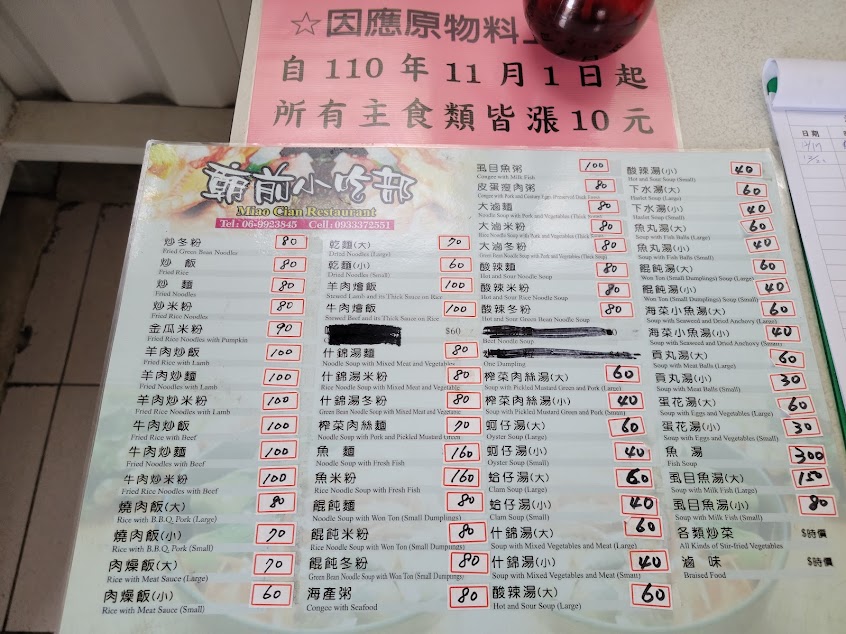 ☆因應原物料
自110年11月1日起
所有主食類皆漲10元
日期
廟前小吃部
Miao Cian Restaurant
Tel:06-9923845 Cell:0933372551
炒冬粉 80
Fried Green Bean Noodles
炒飯 80
Fried Rice
炒麵 80
Fried Noodles
炒米粉 80
Fried Rice Noodles
金瓜米粉 90
Fried Rice Noodles with Pumpkin
羊肉炒飯 100
Fried Rice with Lamb
羊肉炒麵 100
Fried Noodles with Lamb
羊肉炒米粉 100
Fried Rice Noodles with Lamb
牛肉炒飯 100
Fried Rice with Beef
牛肉炒麵 100
Fried Noodles with Beef
牛肉炒米粉 100
Fried Rice Noodles with Beef
燒肉飯(大) 80
Rice with B.B.Q. Pork (Large)
燒肉飯(小) 70
Rice with B.B.Q. Pork (Small)
肉燥飯(大) 70
Rice with Meat Sauce (Large)
肉燥飯(小) 60
Rice with Meat Sauce (Small)
乾麵(大) 70
Dried Noodles (Large)
乾麵(小) 60
Dried Noodles (Small)
羊肉燴飯 100
Stewed Lamb and its Thick Sauce on Rice
牛肉燴飯 100
Stewed Beef and its Thick Sauce on Rice
$60
什錦湯麵 80
Noodle Soup with Mixed Meat and Vegetables
什錦湯米粉 80
Rice Noodle Soup with Mixed Meat and Vegetable
什錦湯冬粉 80
Green Bean Noodle Soup with Mixed Meat and Vegetable
榨菜肉絲麵 70
Noodle Soup with Pork and Pickled Mustard Green
魚麵 160
Noodle Soup with Fresh Fish
魚米粉 160
Rice Noodle Soup with Fresh Fish
餛飩麵 80
Noodle Soup with Won Ton (Small Dumplings)
餛飩米粉 80
Rice Noodle Soup with Won Ton (Small Dumplings)
餛飩冬粉 80
Green Bean Noodle Soup with Won Ton (Small Dumplings)
海產粥 80
Congee with Seafood
虱目魚粥 100
Congee with Milk Fish
皮蛋瘦肉粥 80
Congee with Pork and Century Eggs (Preserved Duck
大滷麵 80
Noodle Soup with Pork and Vegetables (Thick
大滷米粉 80
Rice Noodle Soup with Pork and Vegetables (Thick
大滷冬粉 80
酸辣麵 80
Hot and Sour Noodle Soup
酸辣米粉 80
Hot and Sour Rice Noodle Soup
酸辣冬粉 80
Hot and Sour Green Bean Noodle Soup
Beef Noodle Soup
One Dumpling
榨菜肉絲湯(大) 60
Soup with Pickled Mustard Green and Pork (Large)
榨菜肉絲湯(小) 40
Soup with Pickled Mustard Green and Pork (Small)
蚵仔湯(大) 60
Oyster Soup (Large)
蚵仔湯(小) 40
Oyster Soup (Small)
蛤仔湯(大) 60
Clam Soup (Large)
蛤仔湯(小) 40
Clam Soup (Small)
什錦湯(大) 60
Soup with Mixed Vegetables and Meat (Large)
什錦湯(小) 40
Soup with Mixed Vegetables and Meat (Small)
酸辣湯(大) 60
Hot and Sour Soup (Large)
酸辣湯(小) 40
Hot and Sour Soup (Small)
下水湯(大) 60
Haslet Soup (Large)
下水湯(小) 40
Haslet Soup (Small)
魚丸湯(大) 60
Soup with Fish Balls (Large)
魚丸湯(小) 40
Soup with Fish Balls (Small)
餛飩湯(大) 60
Won Ton (Small Dumplings) Soup (Large)
餛飩湯(小) 40
Won Ton (Small Dumplings) Soup (Small)
海菜小魚湯(大) 60
Soup with Seaweed and Dried Anchovy (Large)
海菜小魚湯(小) 40
Soup with Seaweed and Dried Anchovy (Small)
貢丸湯(大) 60
Soup with Meat Balls (Large)
貢丸湯(小) 30
Soup with Meat Balls (Small)
蛋花湯(大) 60
Soup with Eggs and Vegetables (Large)
蛋花湯(小) 30
Soup with Eggs and Vegetables (Small)
魚湯 300
Fish Soup
虱目魚湯(大) 150
Soup with Milk Fish (Large)
虱目魚湯(小) 80
Soup with Milk Fish (Small)
各類炒菜 $時價
All Kinds of Stir-fried Vegetables
滷味 $時價
Braised Food